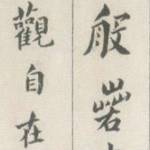 般若
觀自在